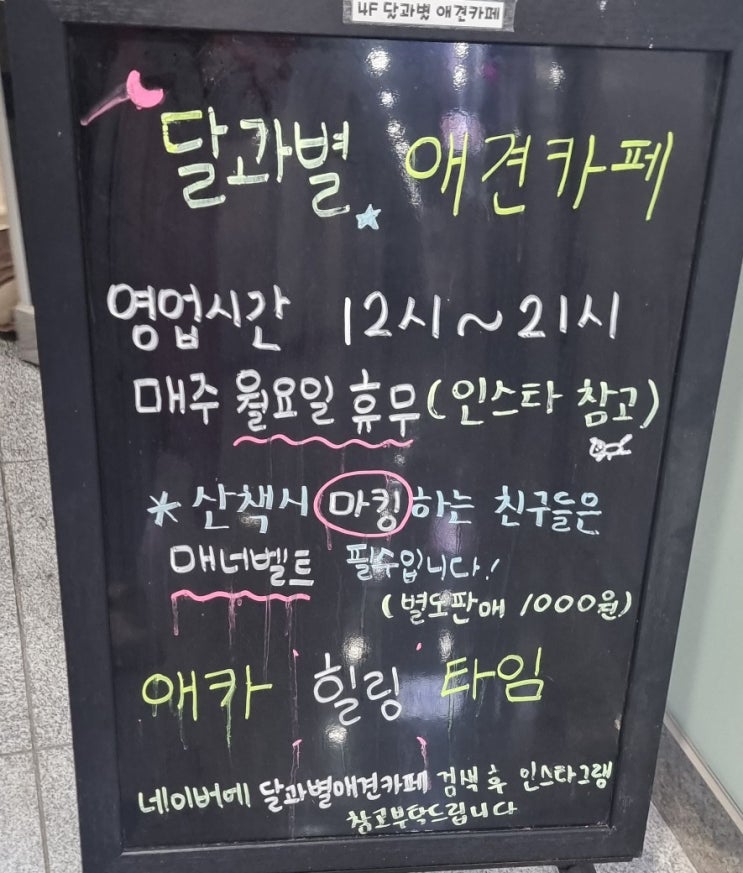 4F 달과별 애견카페
달과별 애견카페
영업시간 12시~21시
매주 월요일 휴무(인스타 참고)
* 산책시 마킹하는 친구들은
매너벨트 필수입니다!
(별도판매 1000원)
애카 힐링 타임
네이버에 달과별애견카페 검색 후 인스타그램
참고부탁드립니다